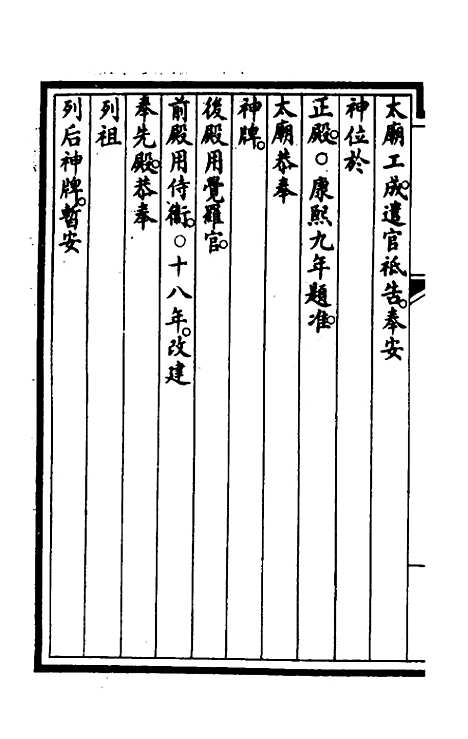 太廟工成。遣官祗告。奉安
神位於
正殿。○康熙九年題准。
太廟恭奉
神牌。
後殿用覺羅官。
前殿用侍衞。○十八年。改建
奉先殿。恭奉
列祖
列后神牌。暫安